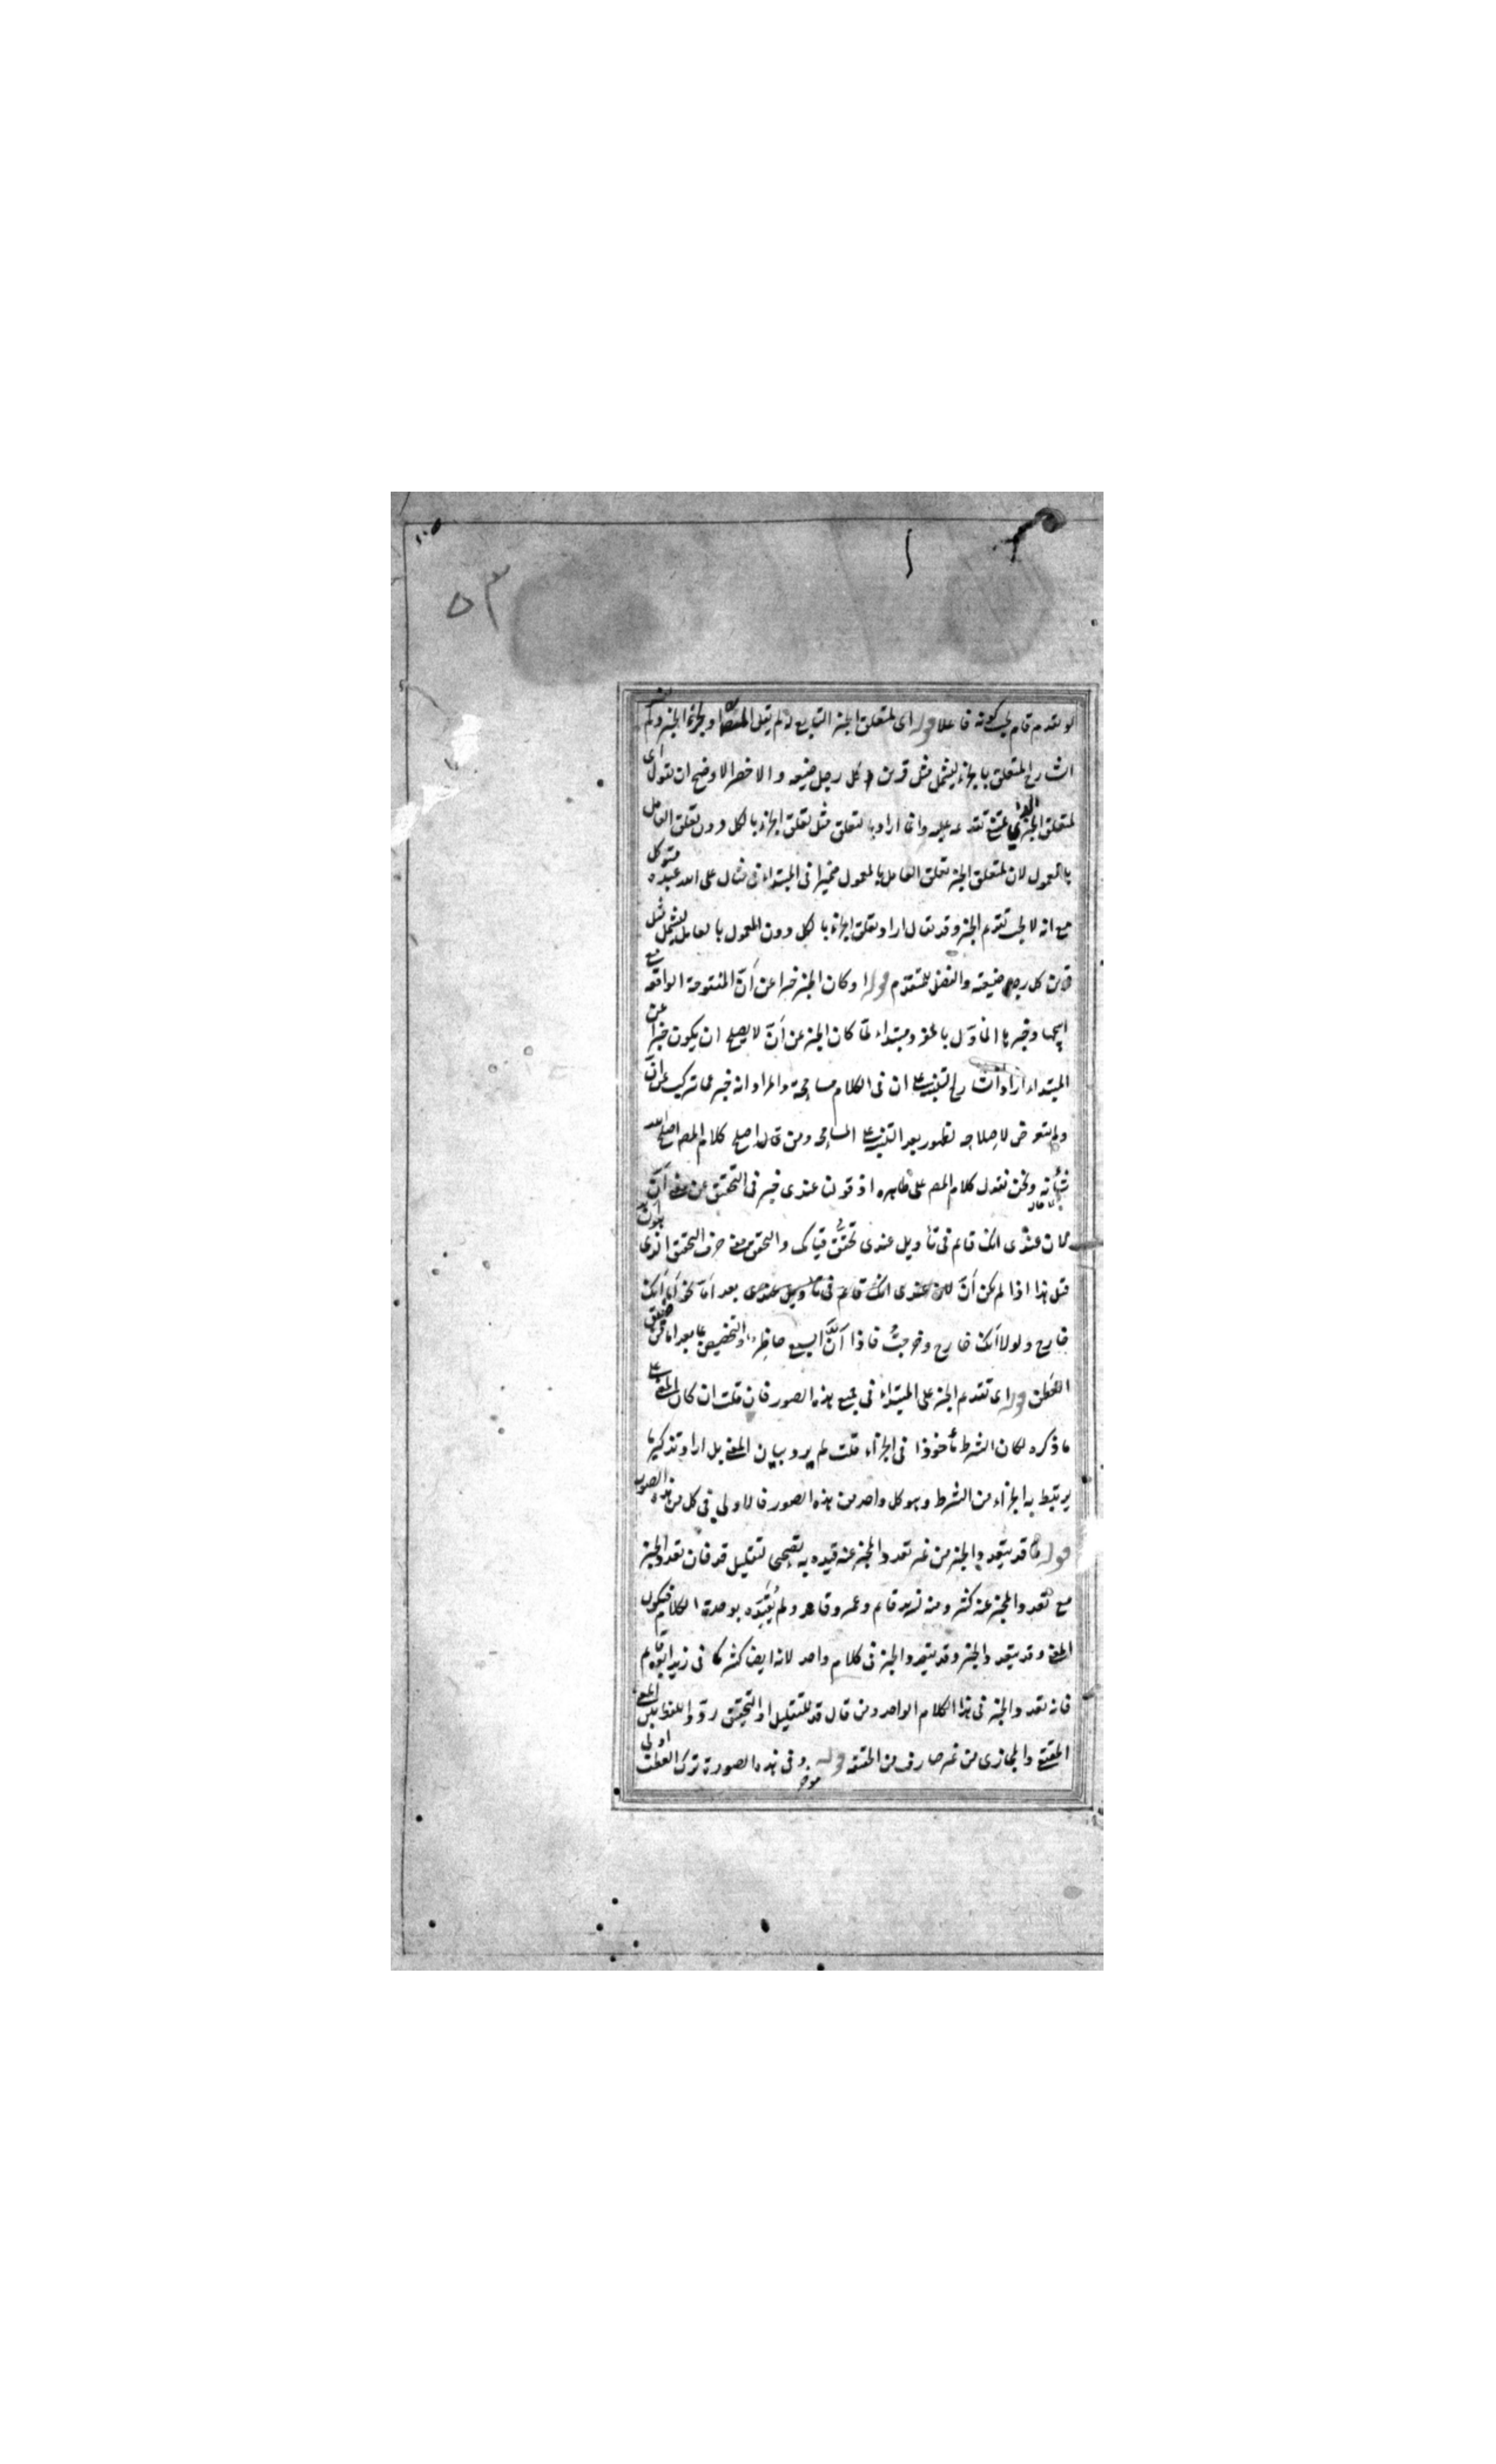 ٥٣
لو تقدم قام لجب كونه فاعلا قوله اى لمتعلق الخبر التابع له لم يقل المص او لجزء الخبر ولم
الشارح المتعلق بالجزء ليشمل مثل قرن كل رجل ضيعته والاخصر الاوضح ان يقول اى
لمتعلق الخبر الذى يمتنع تقدمه عليه وانما اراد بالتعلق مثل تعلق الجزء بالكل دون تعلق العامل
بالمعمول لان لمتعلق الخبر تعلق العامل بالمعمول ضميرا فى المبتداء فى مثال على الله عبده متوكل
مع انه لا يجب تقديم الخبر وقد يقال اراد تعلق الجزء بالكل دون المعمول بالعامل ليشمل مثل
قرن كل رجل ضيعته والفضل للمتقدم قوله او كان الخبر خبرا عن أنّ المفتوحة الواقعة مع
اسمها وخبرها المأول بالمفرد مبتداء لما كان الخبر عن أنّ لا يصلح ان يكون خبرا عن
المبتداء اراد الشارح التنبيه على ان فى الكلام مسامحة والمراد انه خبر عما تركب من أنّ
ولم يتعرض لاصلاحه لظهوره بعد التنبيه على المسامحة ومن قال اصلح كلام المص اصلح الله
شأنه ونحن نقول كلام المص على ظاهره اذ قولن عندى خبر فى التحقيق عن معنى أنّ
لان عندى انك قائم فى تأويل عندى تحقّق قيامك والتحقق معنى حرف التحقيق الذى
قيل هذا اذا لم يكن أنّ بعد امّا نحو امّا أنّك
خارج ولولا أنك خارج وخرجتُ فاذا أنّ السبع حاضر والتخصيص بما بعد اما
الفطن قوله اى تقديم الخبر على المبتداء فى جميع هذه الصور فان قلت ان كان المعنى على
ما ذكره لكان الشرط مأخوذا فى الجزاء قلت لم يرد بيان المعنى بل اراد تذكير ما
يرتبط به الجزاء من الشرط وهو كل واحد من هذه الصور فالاولى فى كل من هذه الصور
قوله قد يتعدد الخبر من غير تعدد المخبر عنه قيده به لتصحيح تقليل قد فان تعدد الخبر
مع تعدد المخبر عنه كثير ومنه زيد قائم وعمرو قاعد ولم يُقيّده بوحدة الكلام فيكون
المعنى وقد يتعدد الخبر وقد يتعدد الخبر فى كلام واحد لانه ايض كثير كما فى زيد ابوه قائم
فانه تعدد الخبر فى هذا الكلام الواحد ومن قال قد للتقليل او التحقيق ردد اللفظ بين المعنى
الحقيقى والمجازى من غير صارف من الحقيقة قوله وفى هذه الصورة ترك العطف اولى